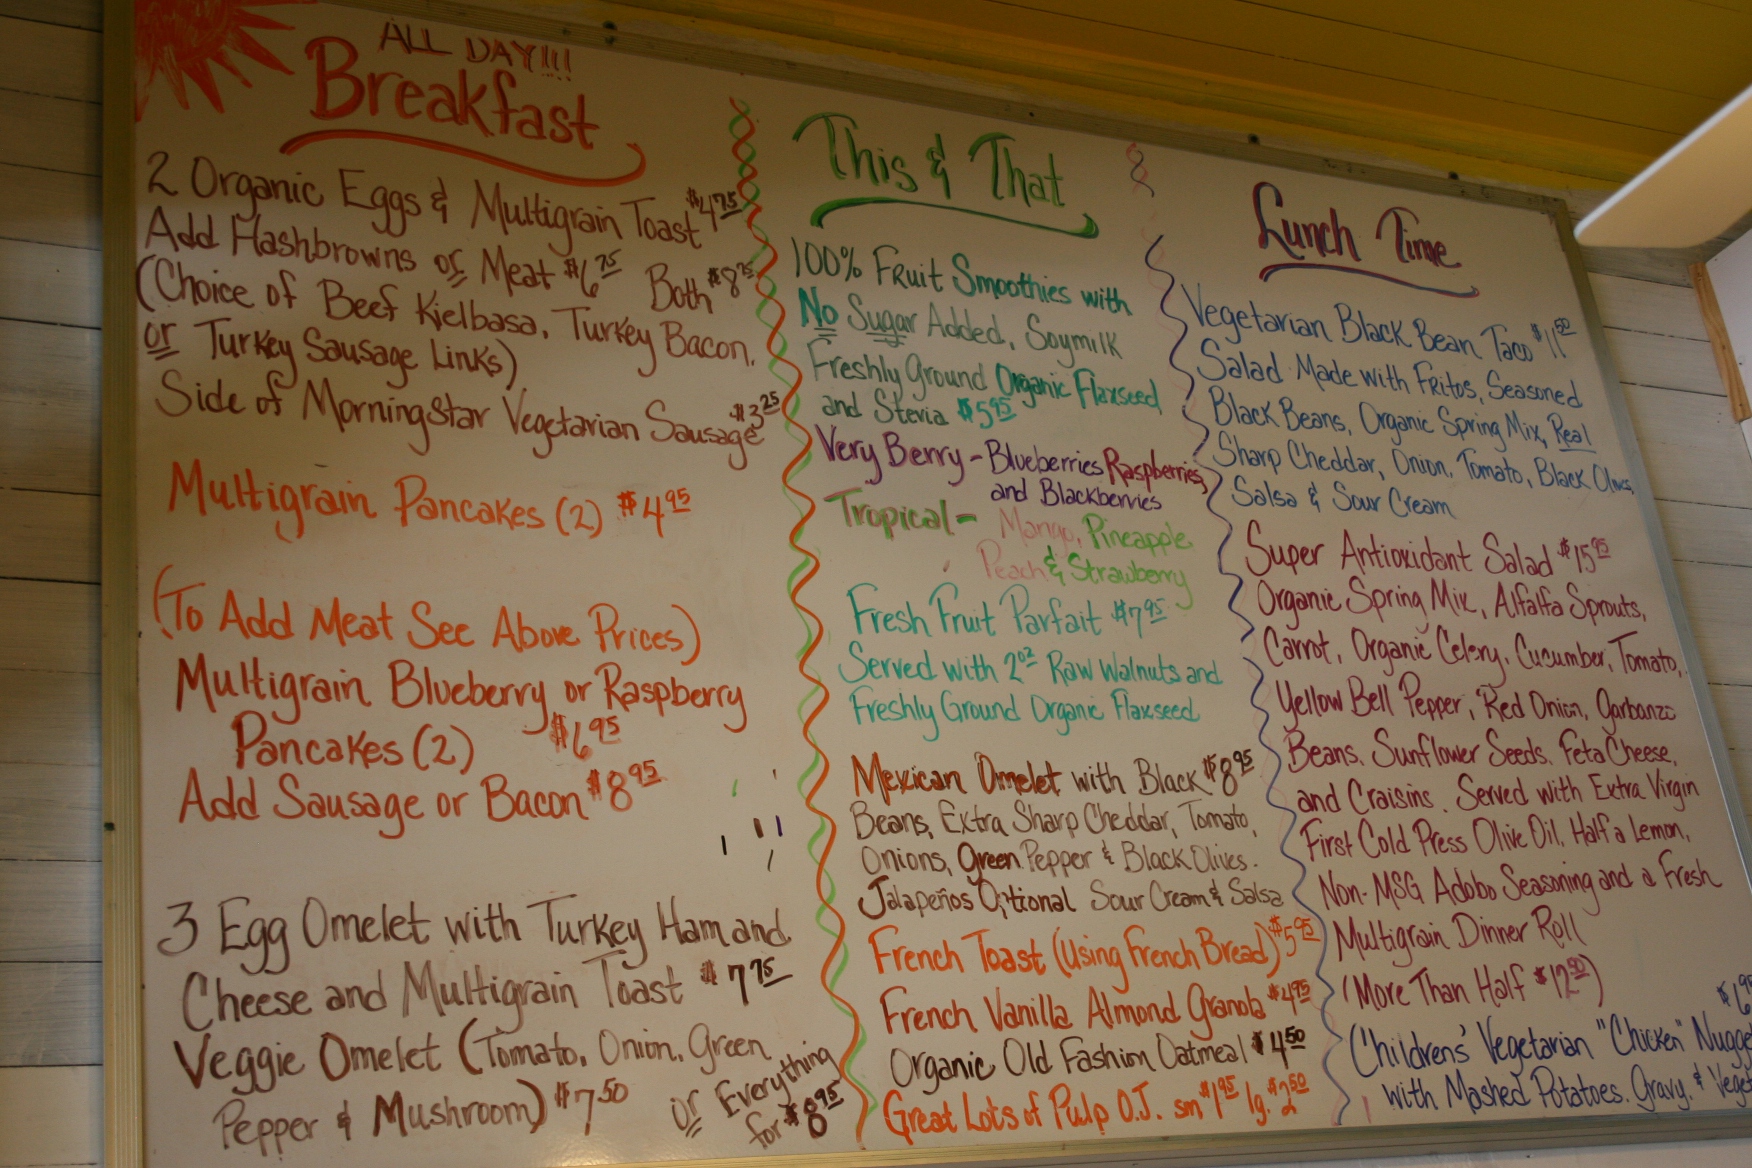 ALL DAY!!!
Breakfast
2 Organic Eggs & Multigrain Toast $4.75
Add Hashbrowns or Meat $6.75 Both $8.75
(Choice of Beef Kielbasa, Turkey Bacon,
or Turkey Sausage Links)
Side of MorningStar Vegetarian Sausage $3.25
Multigrain Pancakes (2) $4.95
(To Add Meat See Above Prices)
Multigrain Blueberry or Raspberry
Pancakes (2) $6.95
Add Sausage or Bacon $8.95
3 Egg Omelet with Turkey Ham and
Cheese and Multigrain Toast $7.75
Veggie Omelet (Tomato, Onion, Green
Pepper & Mushroom) $7.50
or Everything
for $8.95
This & That
100% Fruit Smoothies with
No Sugar Added, Soymilk
Freshly Ground Organic Flaxseed
and Stevia $5.95
Very Berry - Blueberries Raspberries,
and Blackberries
Tropical - Mango, Pineapple,
Peach & Strawberry
Fresh Fruit Parfait $7.95
Served with 2oz Raw Walnuts and
Freshly Ground Organic Flaxseed
Mexican Omelet with Black $8.95
Beans, Extra Sharp Cheddar, Tomato,
Onions, Green Pepper & Black Olives.
Jalapeños Optional Sour Cream & Salsa
French Toast (Using French Bread) $5.95
French Vanilla Almond Granola $4.95
Organic Old Fashion Oatmeal $4.50
Great Lots of Pulp O.J. sm $1.95 lg. $2.50
Lunch Time
Vegetarian Black Bean Taco $11.50
Salad. Made with Fritos, Seasoned
Black Beans, Organic Spring Mix, Real
Sharp Cheddar, Onion, Tomato, Black Olives,
Salsa & Sour Cream
Super Antioxidant Salad $15.95
Organic Spring Mix, Alfalfa Sprouts,
Carrot, Organic Celery, Cucumber, Tomato,
Yellow Bell Pepper, Red Onion, Garbanzo
Beans, Sunflower Seeds, Feta Cheese,
and Craisins. Served with Extra Virgin
First Cold Press Olive Oil, Half a Lemon,
Non-MSG Adobo Seasoning and a Fresh
Multigrain Dinner Roll
(More Than Half $12.50)
Children's Vegetarian "Chicken" Nugge
with Mashed Potatoes, Gravy, & Veget